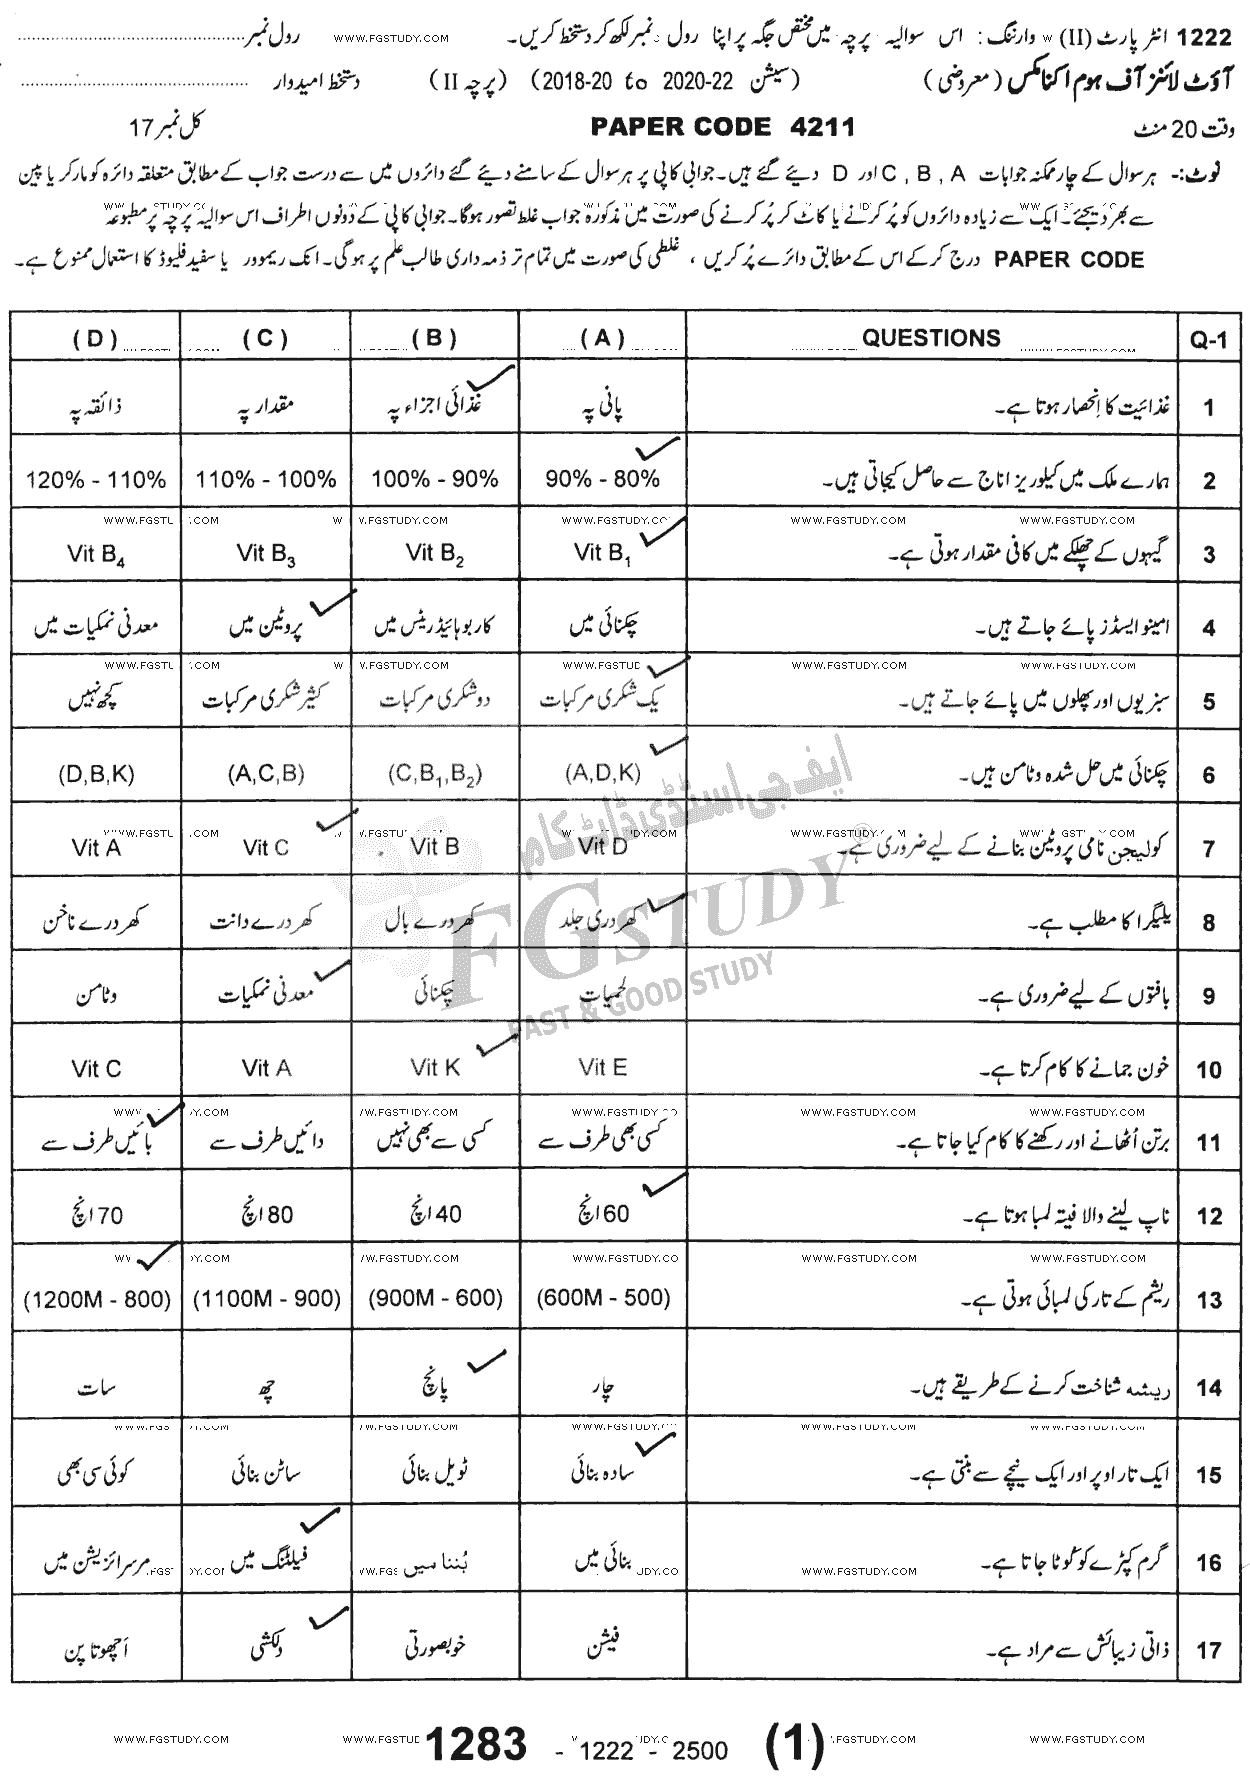 1222 انٹر پارٹ (II) وارننگ: اس سوالیہ پرچہ میں مختص جگہ پر اپنا رول نمبر لکھ کر دستخط کریں۔ WWW.FGSTUDY.COM رول نمبر
آؤٹ لائنز آف ہوم اکنامکس (معروضی) (سیشن 2018-20 to 2020-22) (پرچہ II) دستخط امیدوار
وقت 20 منٹ PAPER CODE 4211 کل نمبر 17
نوٹ:- ہر سوال کے چار ممکنہ جوابات A , B , C اور D دیئے گئے ہیں۔ جوابی کاپی پر ہر سوال کے سامنے دیئے گئے دائروں میں سے درست جواب کے مطابق متعلقہ دائرہ کو مارکر یا پین
سے بھر دیجئے۔ ایک سے زیادہ دائروں کو پُر کرنے یا کاٹ کر پُر کرنے کی صورت میں مذکورہ جواب غلط تصور ہوگا۔ جوابی کاپی کے دونوں اطراف اس سوالیہ پرچہ پر مطبوعہ
PAPER CODE درج کر کے اس کے مطابق دائرے پُر کریں ، غلطی کی صورت میں تمام تر ذمہ داری طالب علم پر ہوگی۔ انک ریموور یا سفید فلیوڈ کا استعمال ممنوع ہے۔
Q-1 QUESTIONS (A) (B) (C) (D)
1 غذائیت کا اِنحصار ہوتا ہے۔ پانی پہ غذائی اجزاء پہ مقدار پہ ذائقہ پہ
2 ہمارے ملک میں کیلوریز اناج سے حاصل کیجاتی ہیں۔ 90% - 80% 100% - 90% 110% - 100% 120% - 110%
WWW.FGSTUDY.COM
3 گیہوں کے چھلکے میں کافی مقدار ہوتی ہے۔ Vit B1 Vit B2 Vit B3 Vit B4
4 امینو ایسڈز پائے جاتے ہیں۔ چکنائی میں کاربوہائیڈریٹس میں پروٹین میں معدنی نمکیات میں
WWW.FGSTUDY.COM
5 سبزیوں اور پھلوں میں پائے جاتے ہیں۔ یک شکری مرکبات دو شکری مرکبات کثیر شکری مرکبات کچھ نہیں
6 چکنائی میں حل شدہ وٹامن ہیں۔ (A,D,K) (C,B1,B2) (A,C,B) (D,B,K)
7 کولیجن نامی پروٹین بنانے کے لیے ضروری ہے۔ Vit D Vit B Vit C Vit A
ایف جی اسٹڈی ڈاٹ کام
FGSTUDY
FAST & GOOD STUDY
8 پلیگرا کا مطلب ہے۔ کھردری جلد کھردرے بال کھردرے دانت کھردرے ناخن
9 بافتوں کے لیے ضروری ہے۔ لحمیات چکنائی معدنی نمکیات وٹامن
10 خون جمانے کا کام کرتا ہے۔ Vit E Vit K Vit A Vit C
WWW.FGSTUDY.COM
11 برتن اُٹھانے اور رکھنے کا کام کیا جاتا ہے۔ کسی بھی طرف سے کسی سے بھی نہیں دائیں طرف سے بائیں طرف سے
12 ناپ لینے والا فیتہ لمبا ہوتا ہے۔ 60انچ 40انچ 80انچ 70انچ
WWW.FGSTUDY.COM
13 ریشم کے تار کی لمبائی ہوتی ہے۔ (600M - 500) (900M - 600) (1100M - 900) (1200M - 800)
14 ریشہ شناخت کرنے کے طریقے ہیں۔ چار پانچ چھ سات
WWW.FGSTUDY.COM
15 ایک تار اوپر اور ایک نیچے سے بنتی ہے۔ سادہ بنائی ٹویل بنائی ساٹن بنائی کوئی سی بھی
16 گرم کپڑے کو کُوٹا جاتا ہے۔ بنائی میں بُننا میں فیلٹنگ میں مرسرائزیشن میں
WWW.FGSTUDY.COM
17 ذاتی زیبائش سے مراد ہے۔ فیشن خوبصورتی دلکشی اَچھوتا پن
WWW.FGSTUDY.COM 1283 - 1222 - 2500 (1) WWW.FGSTUDY.COM